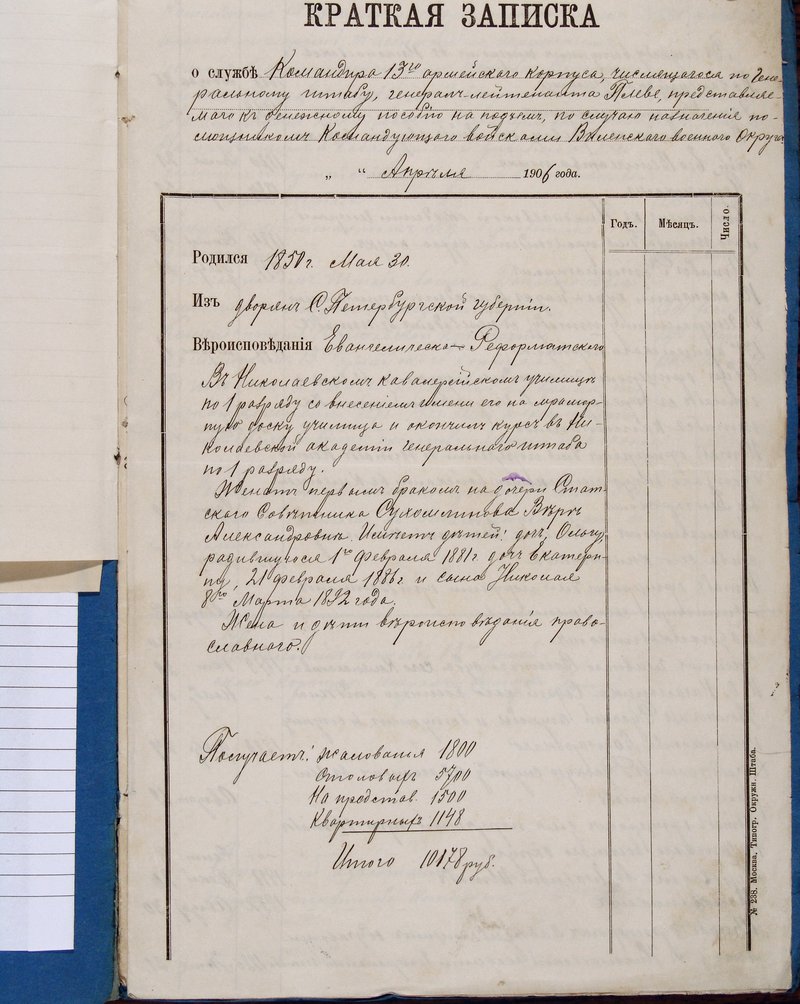 КРАТКАЯ ЗАПИСКА
о службѣ Командира 13го армейскаго корпуса, числящагося по Гене-
ральному штабу, генералъ-лейтенанта Плеве, представляе-
маго къ денежному пособію на подъемъ, по случаю назначенія по-
мощникомъ Командующаго войсками Виленскаго военнаго Округа
„ “ Апрѣля 1906 года.
Годъ. Мѣсяцъ. Число.
Родился 1850 г. Мая 30.
Изъ дворянъ С. Петербургской губерніи.
Вѣроисповѣданія Евангелическо-Реформатскаго
Въ Николаевскомъ кавалерійскомъ училищѣ
по 1 разряду со внесеніемъ имени его на мрамор-
ную доску училища и окончилъ курсъ въ Ни-
колаевской академіи генеральнаго штаба
по 1 разряду.
Женатъ первымъ бракомъ на дочери Стат-
скаго Совѣтника Сухомлинова Вѣрѣ
Александровнѣ. Имѣетъ дѣтей: дочь Ольгу,
родившуюся 1го Февраля 1881 г дочь Екатери-
ну, 21 февраля 1886 г и сына Николая
8го Марта 1892 года.
Жена и дѣти вѣроисповѣданія право-
славнаго.
Получаетъ: жалованія 1800
столовыхъ 5700
На представ. 1500
Квартирныхъ 1148
Итого 10178 руб.
№ 238. Москва, Типогр. Окружн. Штаба.